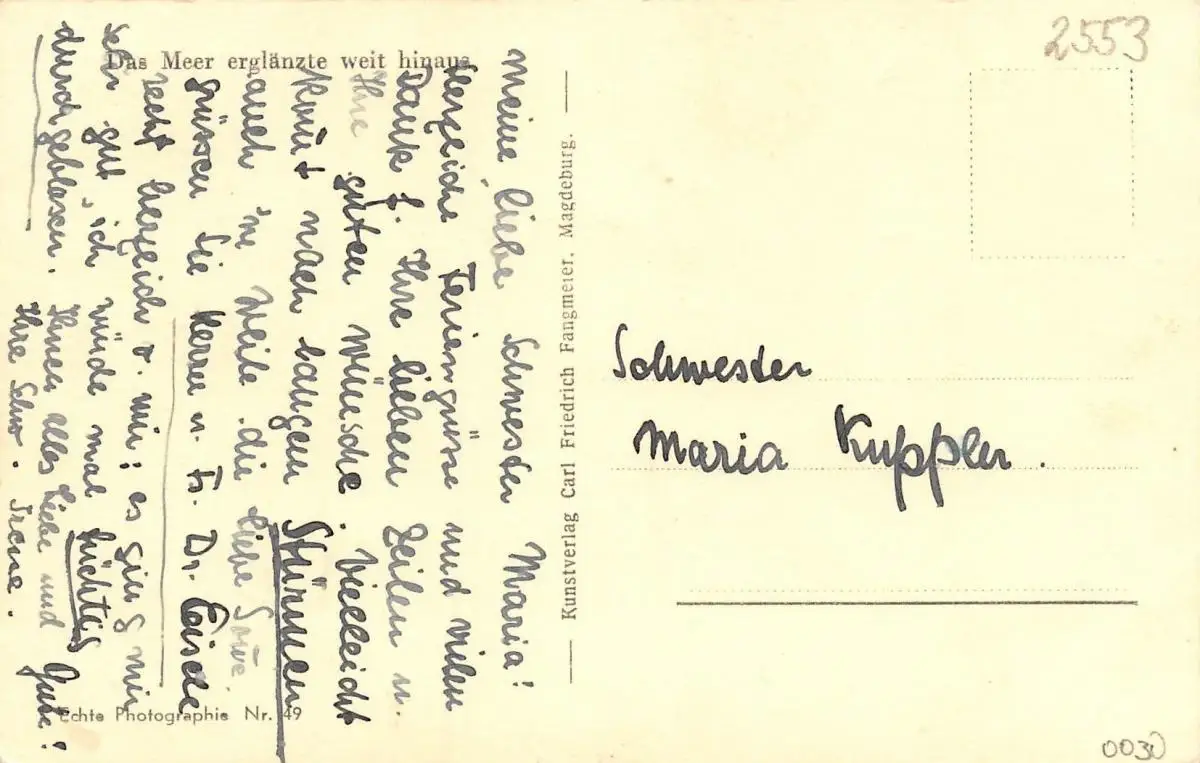 Das Meer erglänzte weit hinaus
Meine liebe Schwester Maria!
Herzliche Feriengrüsse und vielen
Dank f. Ihre lieben Zeilen u.
Ihre guten Wünsche. Vielleicht
kommt nach langen Stürmen
auch 'ne Weile die liebe Sonne
grüssen Sie Herrn u. Fr. Dr. Eisele
recht herzlich v. mir; es ging mir
sehr gut, ich würde mal tüchtig
durchgeblasen. Ihnen alles Liebe und Gute!
Ihre Schw. Irene.
Echte Photographie Nr. 49
Kunstverlag Carl Friedrich Fangmeier, Magdeburg.
2553
Schwester
Maria Kuppler.
0030